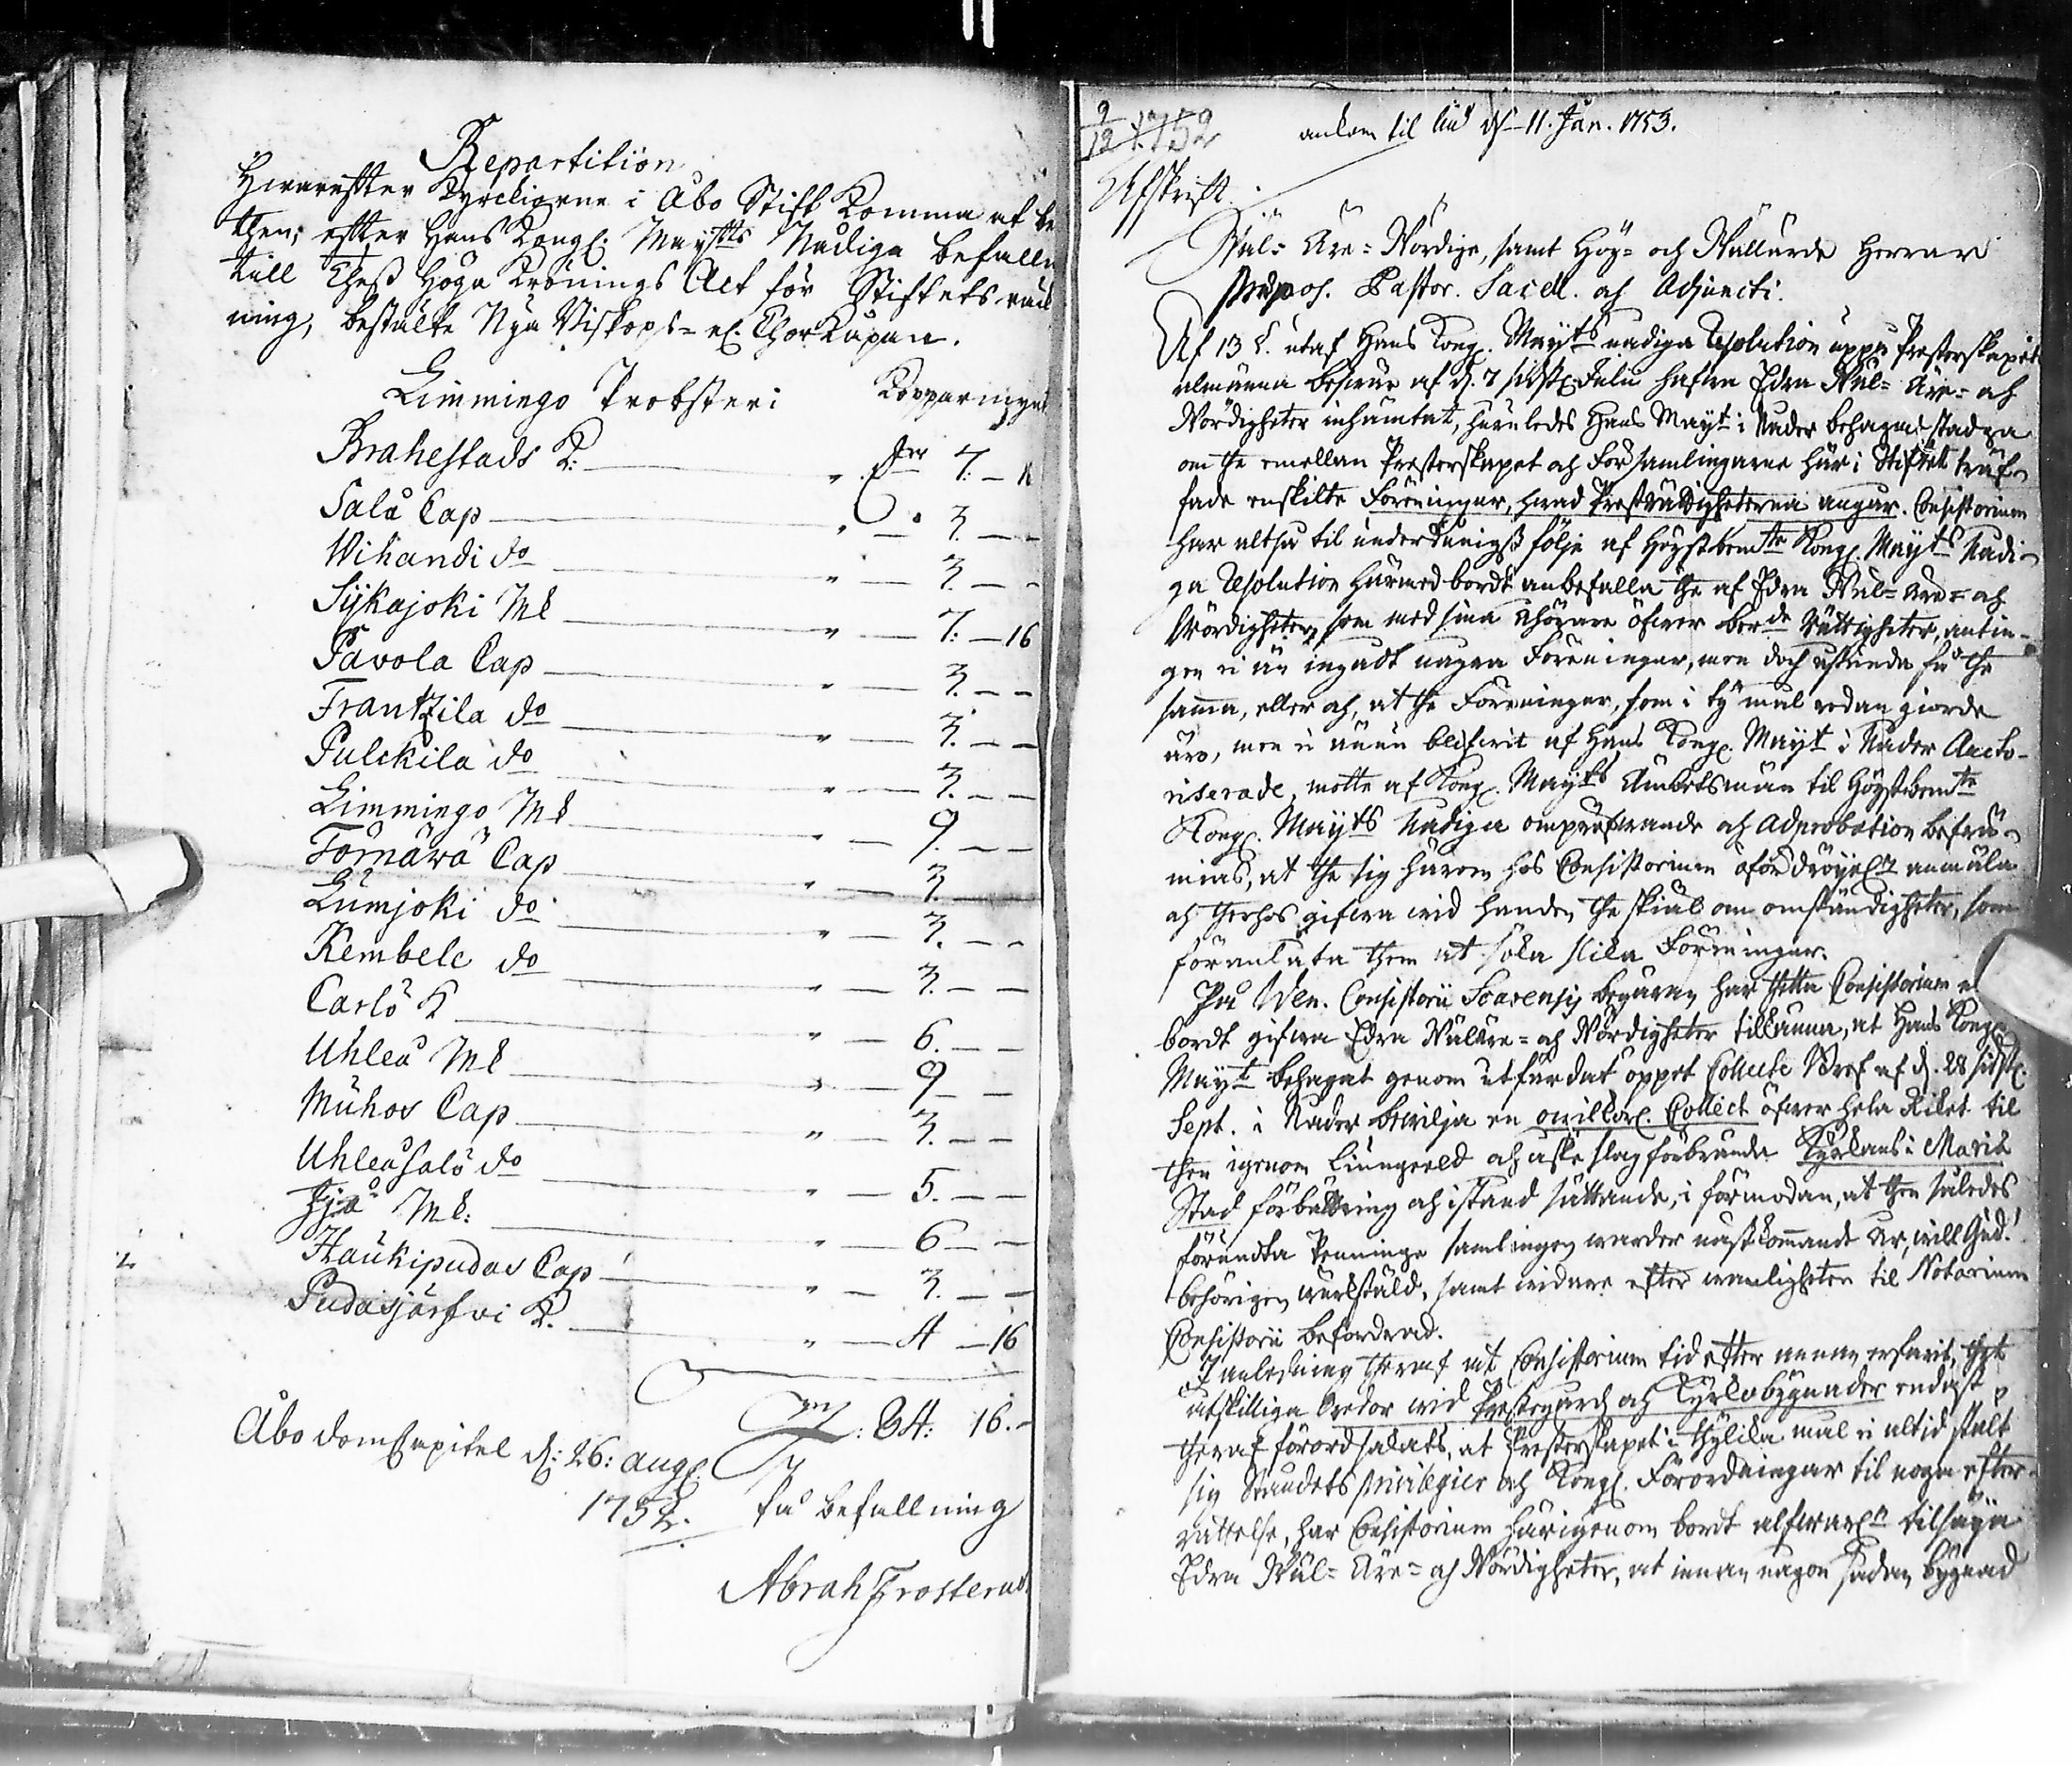 Repartition
Hwarefter Kyrckiorne i Åbo Stift Komma at be
then; efter Hans Kongl. Maijtts Nådiga befalln
till Thess höga Krönings Act för Stiftets räck
ning, bestälte Nya Biskops- Chor Kåpan.
Limmingo Probsteri Kopparmynt
Brahestads K: " 7. —
Salå Cap " 3. — —
Wihandi do " — 3. — —
Sijkajoki Mk " — 7: — 16
Pavola Cap " — 3. — —
Frantzila do " — 3. — —
Pulckila do " — 3. — —
Limmingo Mk " — 9. — —
Törnäwä Cap " — 3. — —
Lumjoki do " — 3. — —
Kembele do " — 3. — —
Carlö K " — 6. — —
Uhleå Mk " — 9 — —
Muhos Cap " — 3. — —
Uhleåsalo do " — 5. — —
Ijå Mk: " — 6 — —
Haukipudas Cap " — 3. — —
Pudasjärfvi K. " — 4 — 16
84: 16. —
Åbo domCapitel d: 26: aug.
1752. På befallning
Abrah Frosterus
9
12 1752 ankom til Uhleå d. 11. Jan. 1753.
Afskrift.
Wäl- Äre- Wördige, samt Hög- och Wällärde Herrar
Præpos. Pastor. Sacell. och Adjuncti.
Af 13 §. utaf Hans Kong. Mayts nådiga Resolution uppå Presterskapets
almänna beswär af d. 7 sidstl. Julii hafwa Edra Wäl- Äre- och
Wördigheter inhämtat, huruledes Hans Mayt i Nåder behagat stadga
om the emellan Presterskapet och Församlingarne här i Stiftet träf-
fade enskilte Föreningar, hwad Prästrättigheterna angår. Consistorium
har altså til underdånigst följe af Högstbemte Kong. Mayts Nådi-
ga Resolution härmed bordt anbefalla the af Edra Wäl- Äre- och
Wördigheter, som med sina åhörare öfwer berde Rättigheter, antin-
gen ei än ingådt några Föreningar, men doch åstunda få the
samma, eller och, at the Föreningar, som i ty mål redan giorde
äro, men ei ännu blifwit af Hans Kong. Mayt i Nåder Aucto-
riserade, motte af Kong. Mayts Ämbetsmän til Högstbemte
Kong. Mayts Nådiga ompröfwande och Adprobation befräm-
mias, at the sig härom hos Consistorium ofördröyel. anmäla
och therhos gifwa wid handen the skiäl om omständigheter, som
föranlåta them at söka slika Föreningar.
På Wen. Consistorii Scarensis begäran har thetta Consistorium
bordt gifwa Edra Wäläre- och Wördigheter tillkänna, at Hans Kong.
Mayt behagat genom utfärdat öppet Collecte Bref af d. 28 sidstl.
Sept. i Nåder bewilja en owilkorl. Collect öfwer hela Riket til
then igenom Liungeeld och åske slag förbrände Kyrkans i Mariæ
Stad förbättring och istånd sättande, i förmodan, at then således
förundta Penninge samlingen warder nästkommande år, will Gud!
behörigen werkstäld, samt widare efter wanligheten til Notarium
Consistorii befordrad.
I anledning theraf at Consistorium tid efter annan erfarit, thet
åtskilliga Oredor wid Prestegård och Kyrkobygnader endast
theraf förordsakats, at Presterskapet i thylika mål ei altid stält
sig Ståndets privilegier och Kongl. Förordningar til noga efter-
rättelse, har Consistorium härigenom bordt alfwarl. tilsäya
Edra Wäl- Äre- och Wördigheter, at innan någon sådan bygnad